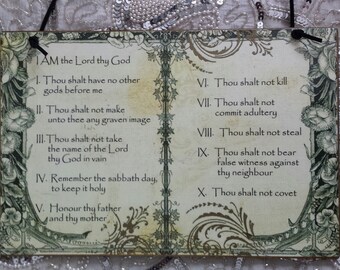 I AM the Lord thy God
I. Thou shalt have no other
gods before me
II. Thou shalt not make
unto thee any graven image
III. Thou shalt not take
the name of the Lord
thy God in vain
IV. Remember the sabbath day,
to keep it holy
V. Honour thy father
and thy mother
VI. Thou shalt not kill
VII. Thou shalt not
commit adultery
VIII. Thou shalt not steal
IX. Thou shalt not bear
false witness against
thy neighbour
X. Thou shalt not covet